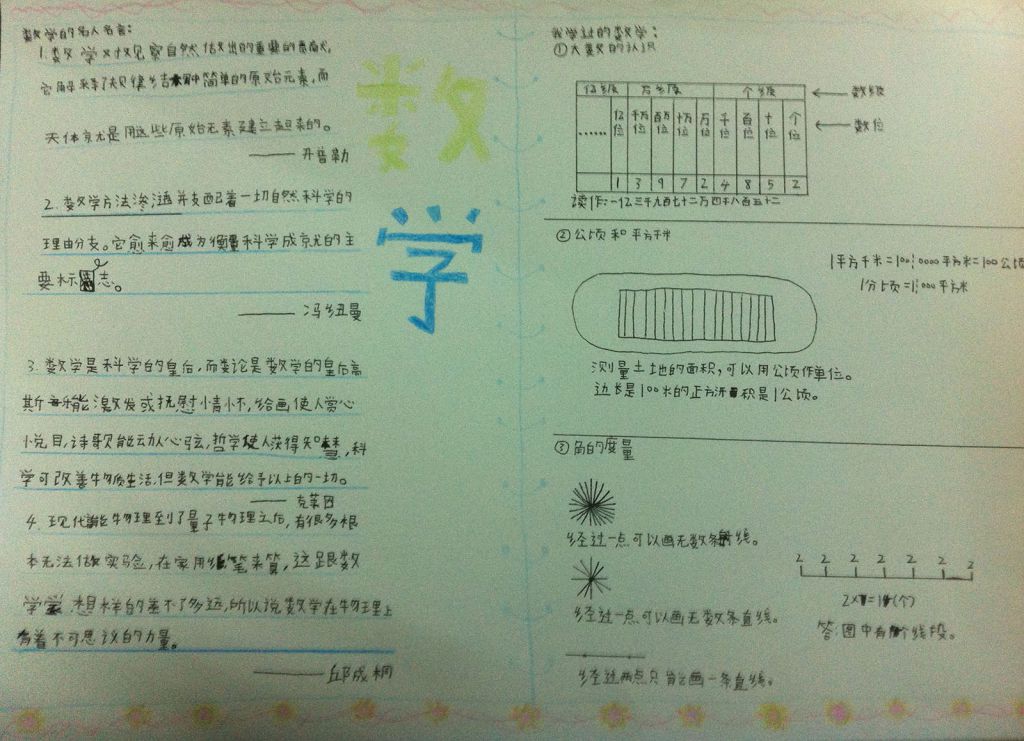 数学的名人名言：
1. 数学对观察自然做出的重要的贡献，
它解释了规律结构中简单的原始元素，而
天体就是用这些原始元素建立起来的。
—— 开普勒
2. 数学方法渗透并支配着一切自然科学的
理由分支。它愈来愈成为衡量科学成就的主
要标志。
—— 冯纽曼
3. 数学是科学的皇后，而数论是数学的皇后高
斯 能激发或抚慰情怀，绘画使人赏心
悦目，诗歌能动人心弦，哲学使人获得知慧，科
学可改善物质生活，但数学能给予以上的一切。
—— 克莱因
4. 现代能物理到了量子物理之后，有很多根
本无法做实验，在家用纸笔来算，这跟数
学 想样的差不了多远，所以说数学在物理上
有着不可思议的力量。
—— 邱成桐
数
学
我学过的数学：
①大数的认识
亿级 万级 个级 ← 数级
…… 亿位 千万位 百万位 十万位 万位 千位 百位 十位 个位 ← 数位
1 3 9 7 2 4 8 5 2
读作：一亿三千九百七十二万四千八百五十二
②公顷和平方千米
1平方千米=100;0000平方米=100公顷
1公顷=1;000平方米
测量土地的面积，可以用公顷作单位。
边长是100米的正方形 积是1公顷。
③角的度量
经过一点可以画无数条射线。
经过一点可以画无数条直线。
经过两点只能画一条直线。
2 2 2 2 2 2 2
答：图中有 个线段。